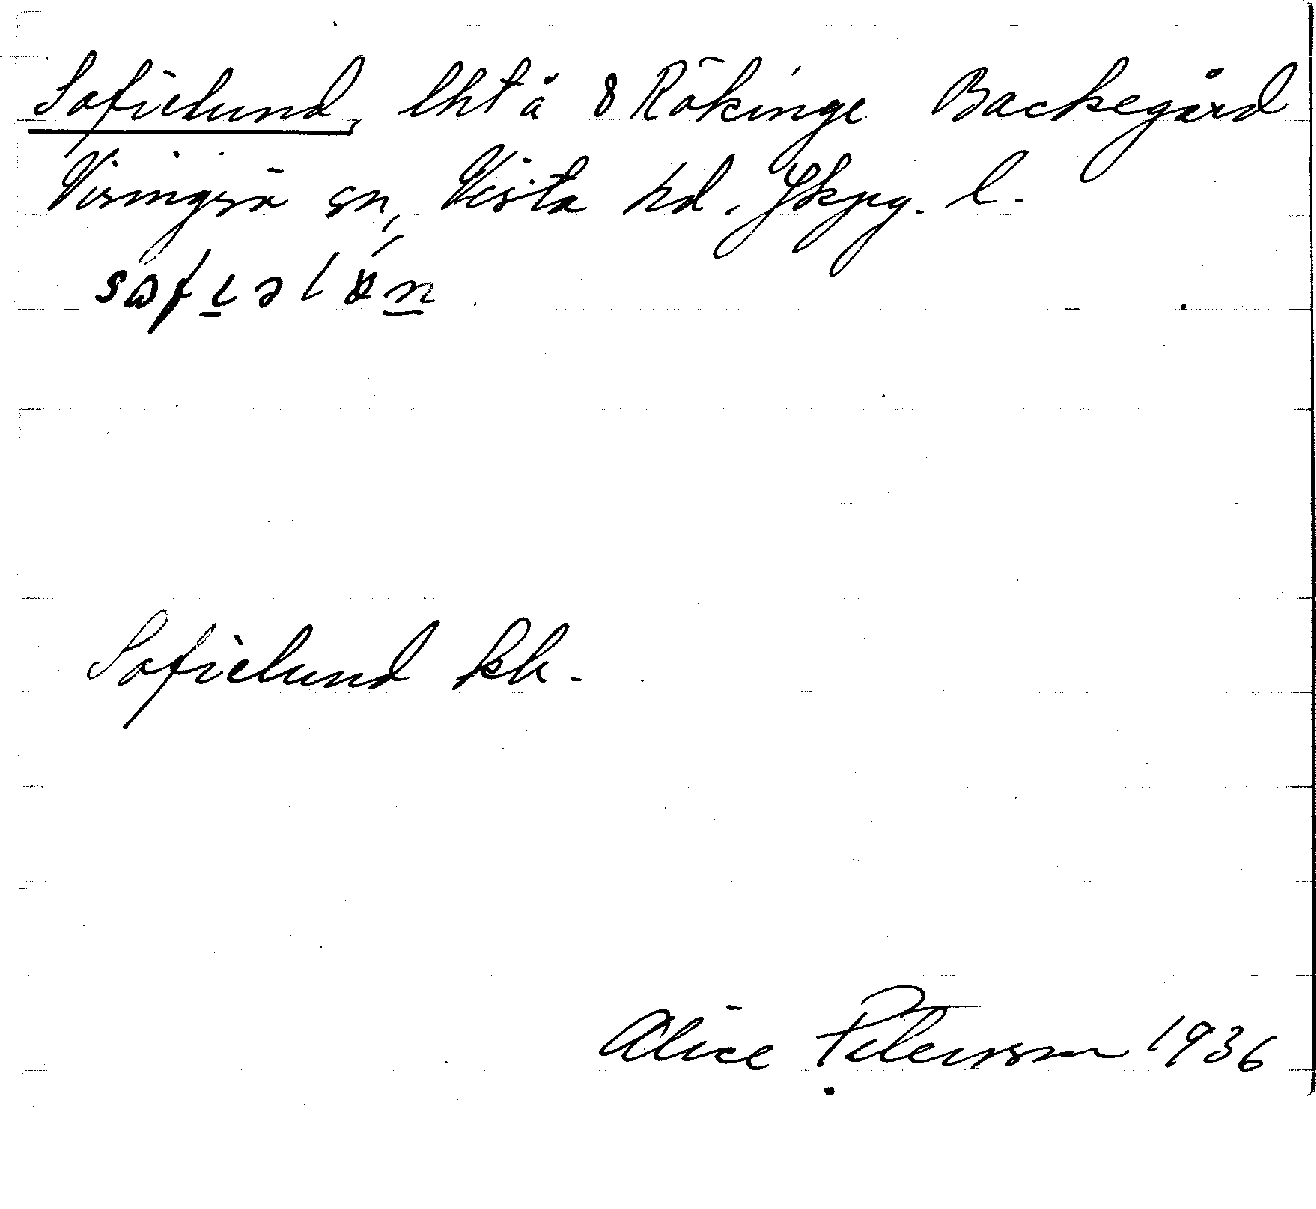 Sofielund, lht å 8 Rökinge Backegård
Visingsö sn, Vista hd. Jkpg. l.
Sofielund kh.
Alice Petersson 1936